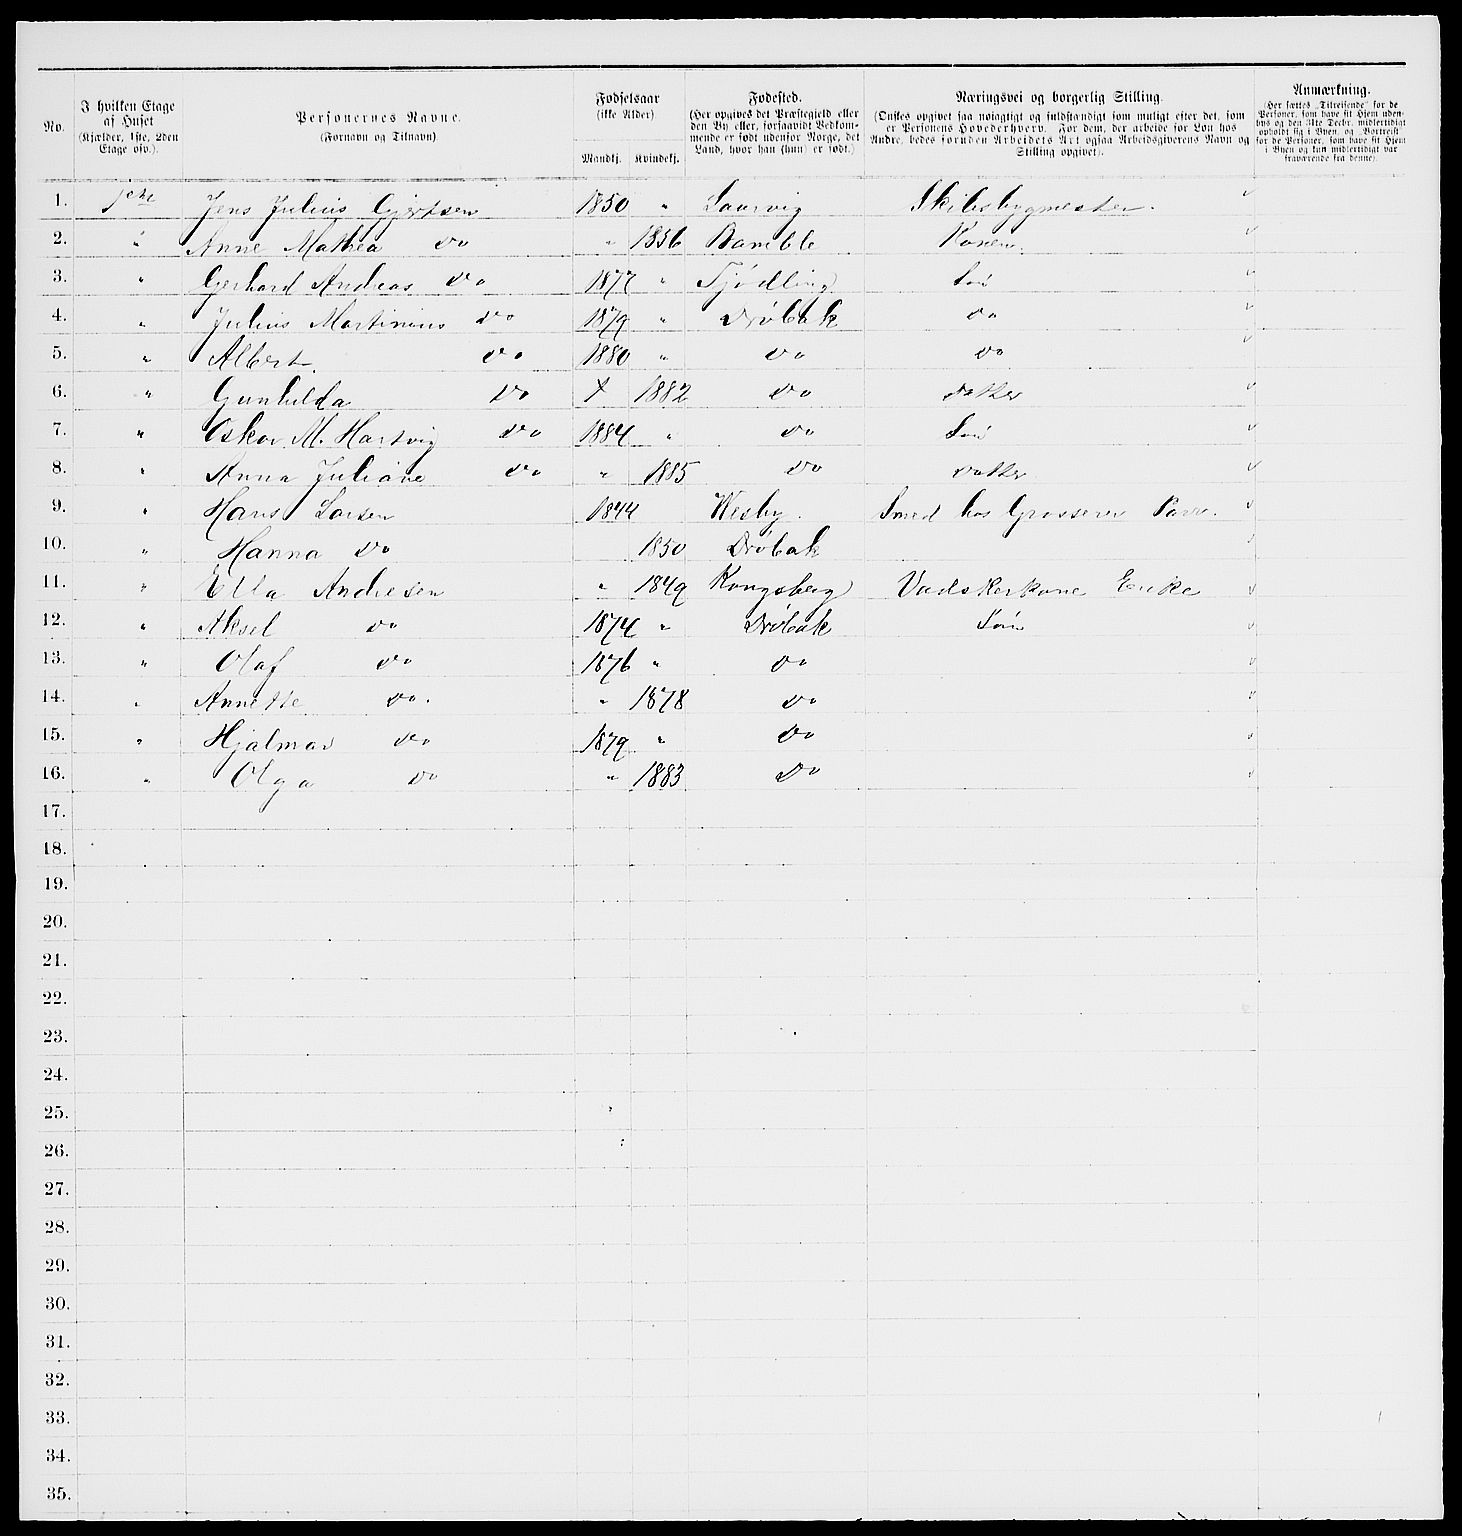 No.
I hvilken Etage af Huset (Kjælder, 1ste, 2den Etage osv.).
Personernes Navne. (Fornavn og Tilnavn)
Fødselsaar (ikke Alder)
Mandkj. Kvindekj.
Fødested. (Her opgives det Præstegjeld eller den By eller, forsaavidt Vedkommende er født udenfor Norge, det Land, hvor han (hun) er født.)
Næringsvei og borgerlig Stilling. (Ønskes opgivet saa nøiagtigt og fuldstændigt som muligt efter det, som er Personens Hovederhverv. For dem, der arbeide for Løn hos Andre, bedes foruden Arbeidets Art ogsaa Arbeidsgiverens Navn og Stilling opgivet).
Anmærkning. (Her sættes „Tilreisende“ for de Personer, som have sit Hjem udenbys og den 31te Decbr. midlertidigt opholdt sig i Byen, og „Bortreist“ for de Personer, som have sit Hjem i Byen og kun midlertidigt var fraværende fra denne).
1. 1ste Jens Julius Gjertsen 1850 " Laurvig Skibsbygmester.
2. " Anne Mathea Do " 1856 Bamble Konen
3. " Gerhard Andreas Do 1877 " Tjødling Søn
4. " Julius Martinius Do 1879 " Drøbak Do
5. " Albert Do 1880 " Do Do
6. " Gunhilda Do 1882 Do Datter
7. " Oskar M. Hartvig Do 1884 " Do Søn
8. " Anna Juliane Do " 1885 Do Datter
9. " Hans Larsen 1844 Wesby. Smed hos Grosserer Parr.
10. " Hanna Do 1850 Drøbak
11. " Ella Andresen " 1849 Kongsberg Vadskerkone Enke
12. " Aksel Do 1874 " Drøbak Søn
13. " Olaf Do 1876 " Do
14. " Annette Do. " 1878 Do
15. " Hjalmar Do 1879 " Do
16. " Olga Do " 1883 Do
17.
18.
19.
20.
21.
22.
23.
24.
25.
26.
27.
28.
29.
30.
31.
32.
33.
34.
35.